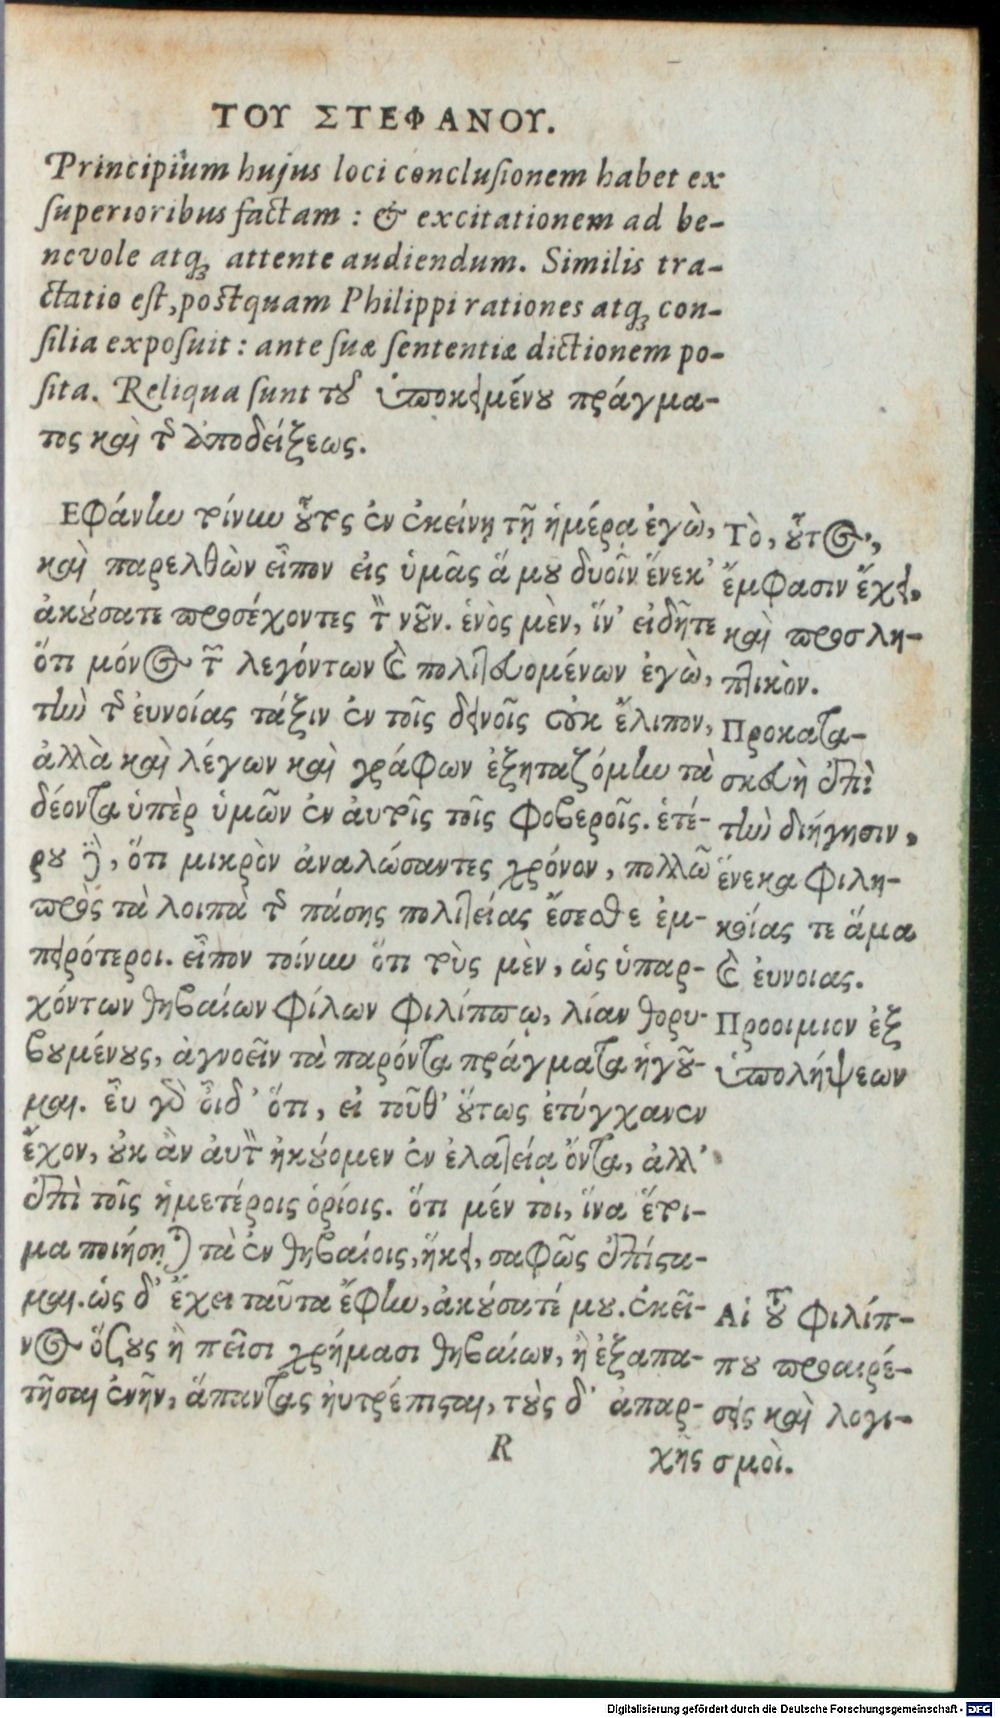 ΤΟΥ ΣΤΕΦΑΝΟΥ.
Principium hujus loci conclusionem habet ex
superioribus factam : & excitationem ad be-
nevole atq; attente audiendum. Similis tra-
ctatio est, postquam Philippi rationes atq; con-
silia exposuit : ante suæ sententiæ dictionem po-
sita. Reliqua sunt τοῦ ὑποκειμένου πράγμα-
τος καὶ τῆς ἀποδείξεως.
Εφάνην τοίνυν οὗτος ἐν ἐκείνῃ τῇ ἡμέρα ἐγὼ,
καὶ παρελθὼν εἶπον εἰς ὑμᾶς ἅ μου δυοῖν ἕνεκ'
ἀκούσατε προσέχοντες τὸν νοῦν. ἑνὸς μὲν, ἵν' εἰδῆτε
ὅτι μόνος τῶν λεγόντων καὶ πολιτευομένων ἐγὼ,
τὴν τῆς ἐυνοίας τάξιν ἐν τοῖς δεινοῖς οὐκ ἔλιπον,
ἀλλὰ καὶ λέγων καὶ γράφων ἐξηταζόμην τὰ
δέοντα ὑπὲρ ὑμῶν ἐν ἀυτοῖς τοῖς φοβεροῖς. ἑτέ-
ρου δὲ, ὅτι μικρὸν ἀναλώσαντες χρόνον, πολλῶ
πρὸς τὰ λοιπὰ τῆς πάσης πολιτείας ἔσεσθε ἐμ-
πειρότεροι. εἶπον τοίνυν ὅτι τοὺς μὲν, ὡς ὑπαρ-
χόντων θηβαίων φίλων φιλίππῳ, λίαν θορυ-
βουμένους, ἀγνοεῖν τὰ παρόντα πράγματα ἡγοῦ-
μαι. εὖ γὰρ οἶδ' ὅτι, εἰ τοῦθ' οὕτως ἐτύγχανεν
ἔχον, οὐκ ἂν ἀυτὸν ἠκούομεν ἐν ἐλατείᾳ ὄντα, ἀλλ'
ἐπὶ τοῖς ἡμετέροις ὁρίοις. ὅτι μέν τοι, ἵνα ἕτοι-
μα ποιήσηται τὰ ἐν θηβαίοις, ἥκει, σαφῶς ἐπίστα-
μαι. ὡς δ' ἔχει ταῦτα ἔφην, ἀκούσατέ μου. ἐκεῖ-
νος ὅσους ἢ πεῖσαι χρήμασι θηβαίων, ἢ ἐξαπα-
τῆσαι ἐνῆν, ἅπαντας ηυτρέπισται, τοὺς δ' ἀπαρ-
R
χῆς
Τὸ, οὗτος,
ἔμφασιν ἔχει,
καὶ προσλη-
πτικὸν.
Προκατα-
σκευὴ ἐπὶ
τὴν διήγησιν,
ἕνεκα φιλη-
κοΐας τε ἅμα
καὶ ἐυνοιας.
Προοιμιον ἐξ
ὑπολήψεων
Αἱ τοῦ Φιλίπ-
που προαιρέ-
σεις καὶ λογι-
σμοὶ.
Digitalisierung gefördert durch die Deutsche Forschungsgemeinschaft - DFG